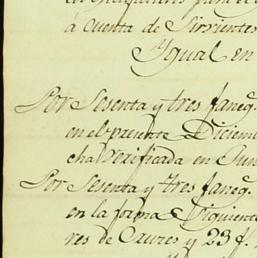 los
para el
á cuenta de Sirvientes
Ygual en
Por Sesenta y tres faneg.
en el presente Diciem
cha verificada en Jun
Por Sesenta y tres faneg.
en la forma Siguiente
res de Cauzes y 23 f.